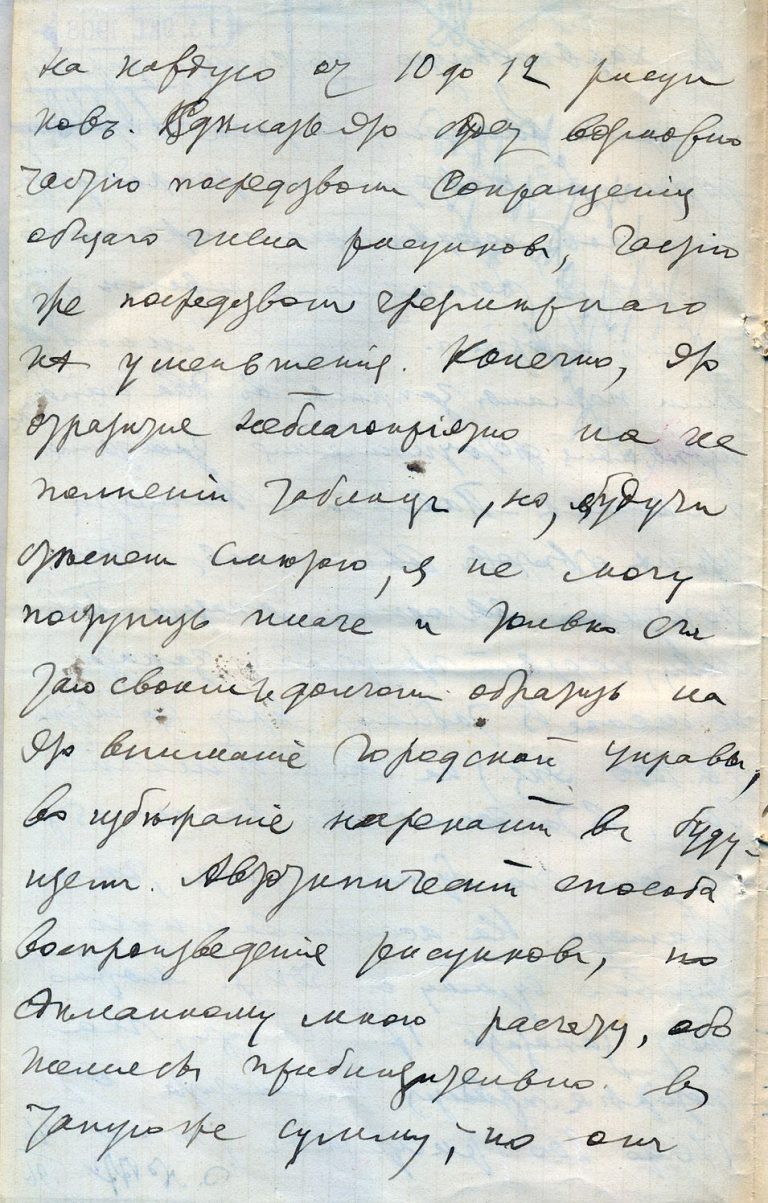 на каждую от 10 до 12 рисун
ковъ. Сдѣлать это можно
частью посредствомъ сокращенія
общаго числа рисунковъ, частію
же посредствомъ
ихъ уменьшенія. Конечно, это
отразится неблагопріятно на ис
полненіи таблицъ, но, будучи
стѣсненъ смѣтою, я не могу
поступить иначе и только счи
таю своимъ долгомъ обратить на
это вниманіе Городской Управы,
во избѣжаніе нареканій въ буду-
щемъ. Автотипическій способъ
воспроизведенія рисунковъ, по
сдѣланному мною расчету, обо
шелся бы приблизительно въ
такую же сумму, но онъ